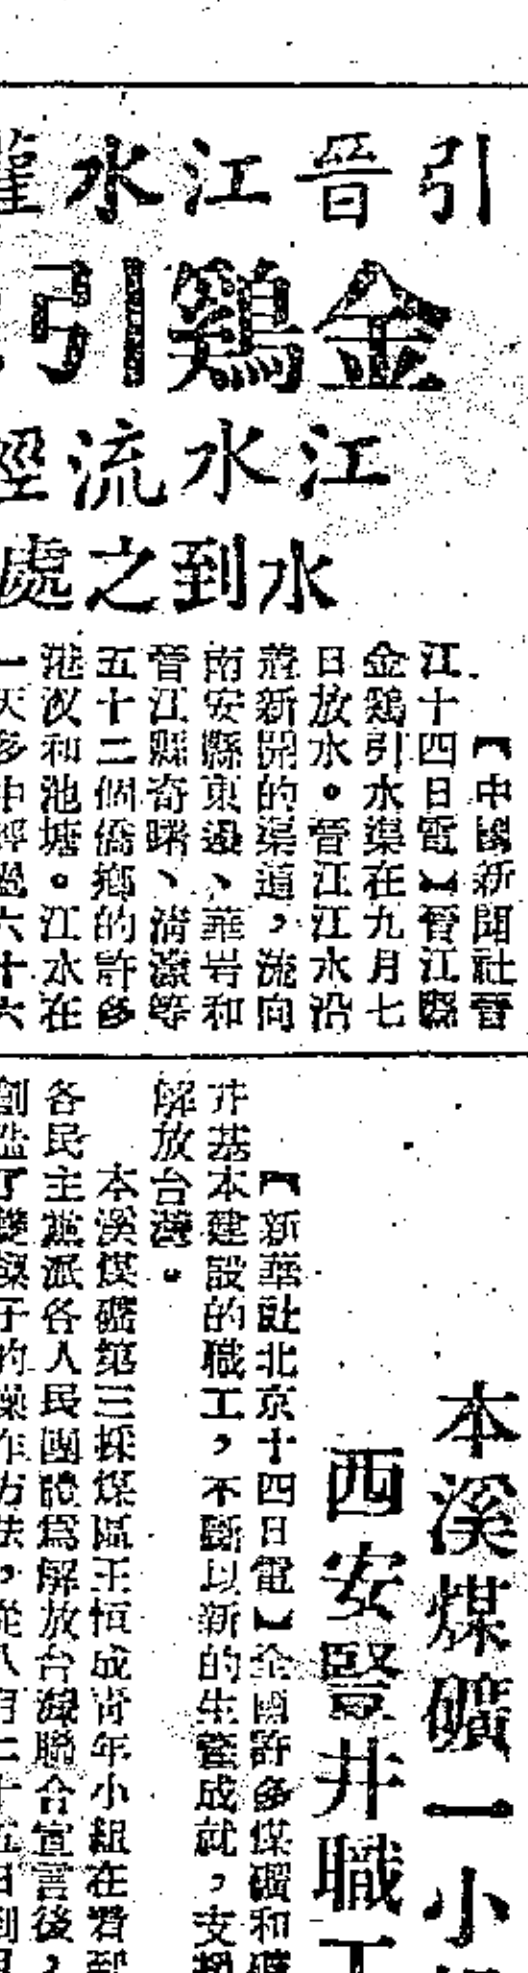 引晉江水
金鷄引
江水流經
水到之處
【中國新聞社晉
江十四日電】晉江縣
金鷄引水渠在九月七
日放水。晉江江水沿
着新開的渠道，流向
南安縣東邊、華岩和
晉江縣奇睹、清濛等
五十二個僑鄉的許多
港汊和池塘。江水在
一天多中經過六十六
本溪煤礦一小
西安豎井職工
【新華社北京十四日電】全國許多煤礦和礦
井基本建設的職工，不斷以新的生產成就，支援
解放台灣。
本溪煤礦第三採煤區王恒成青年小組在看到
各民主黨派各人民團體爲解放台灣聯合宣言後，
創造了雙鎬子的操作方法，從八月二十五日到